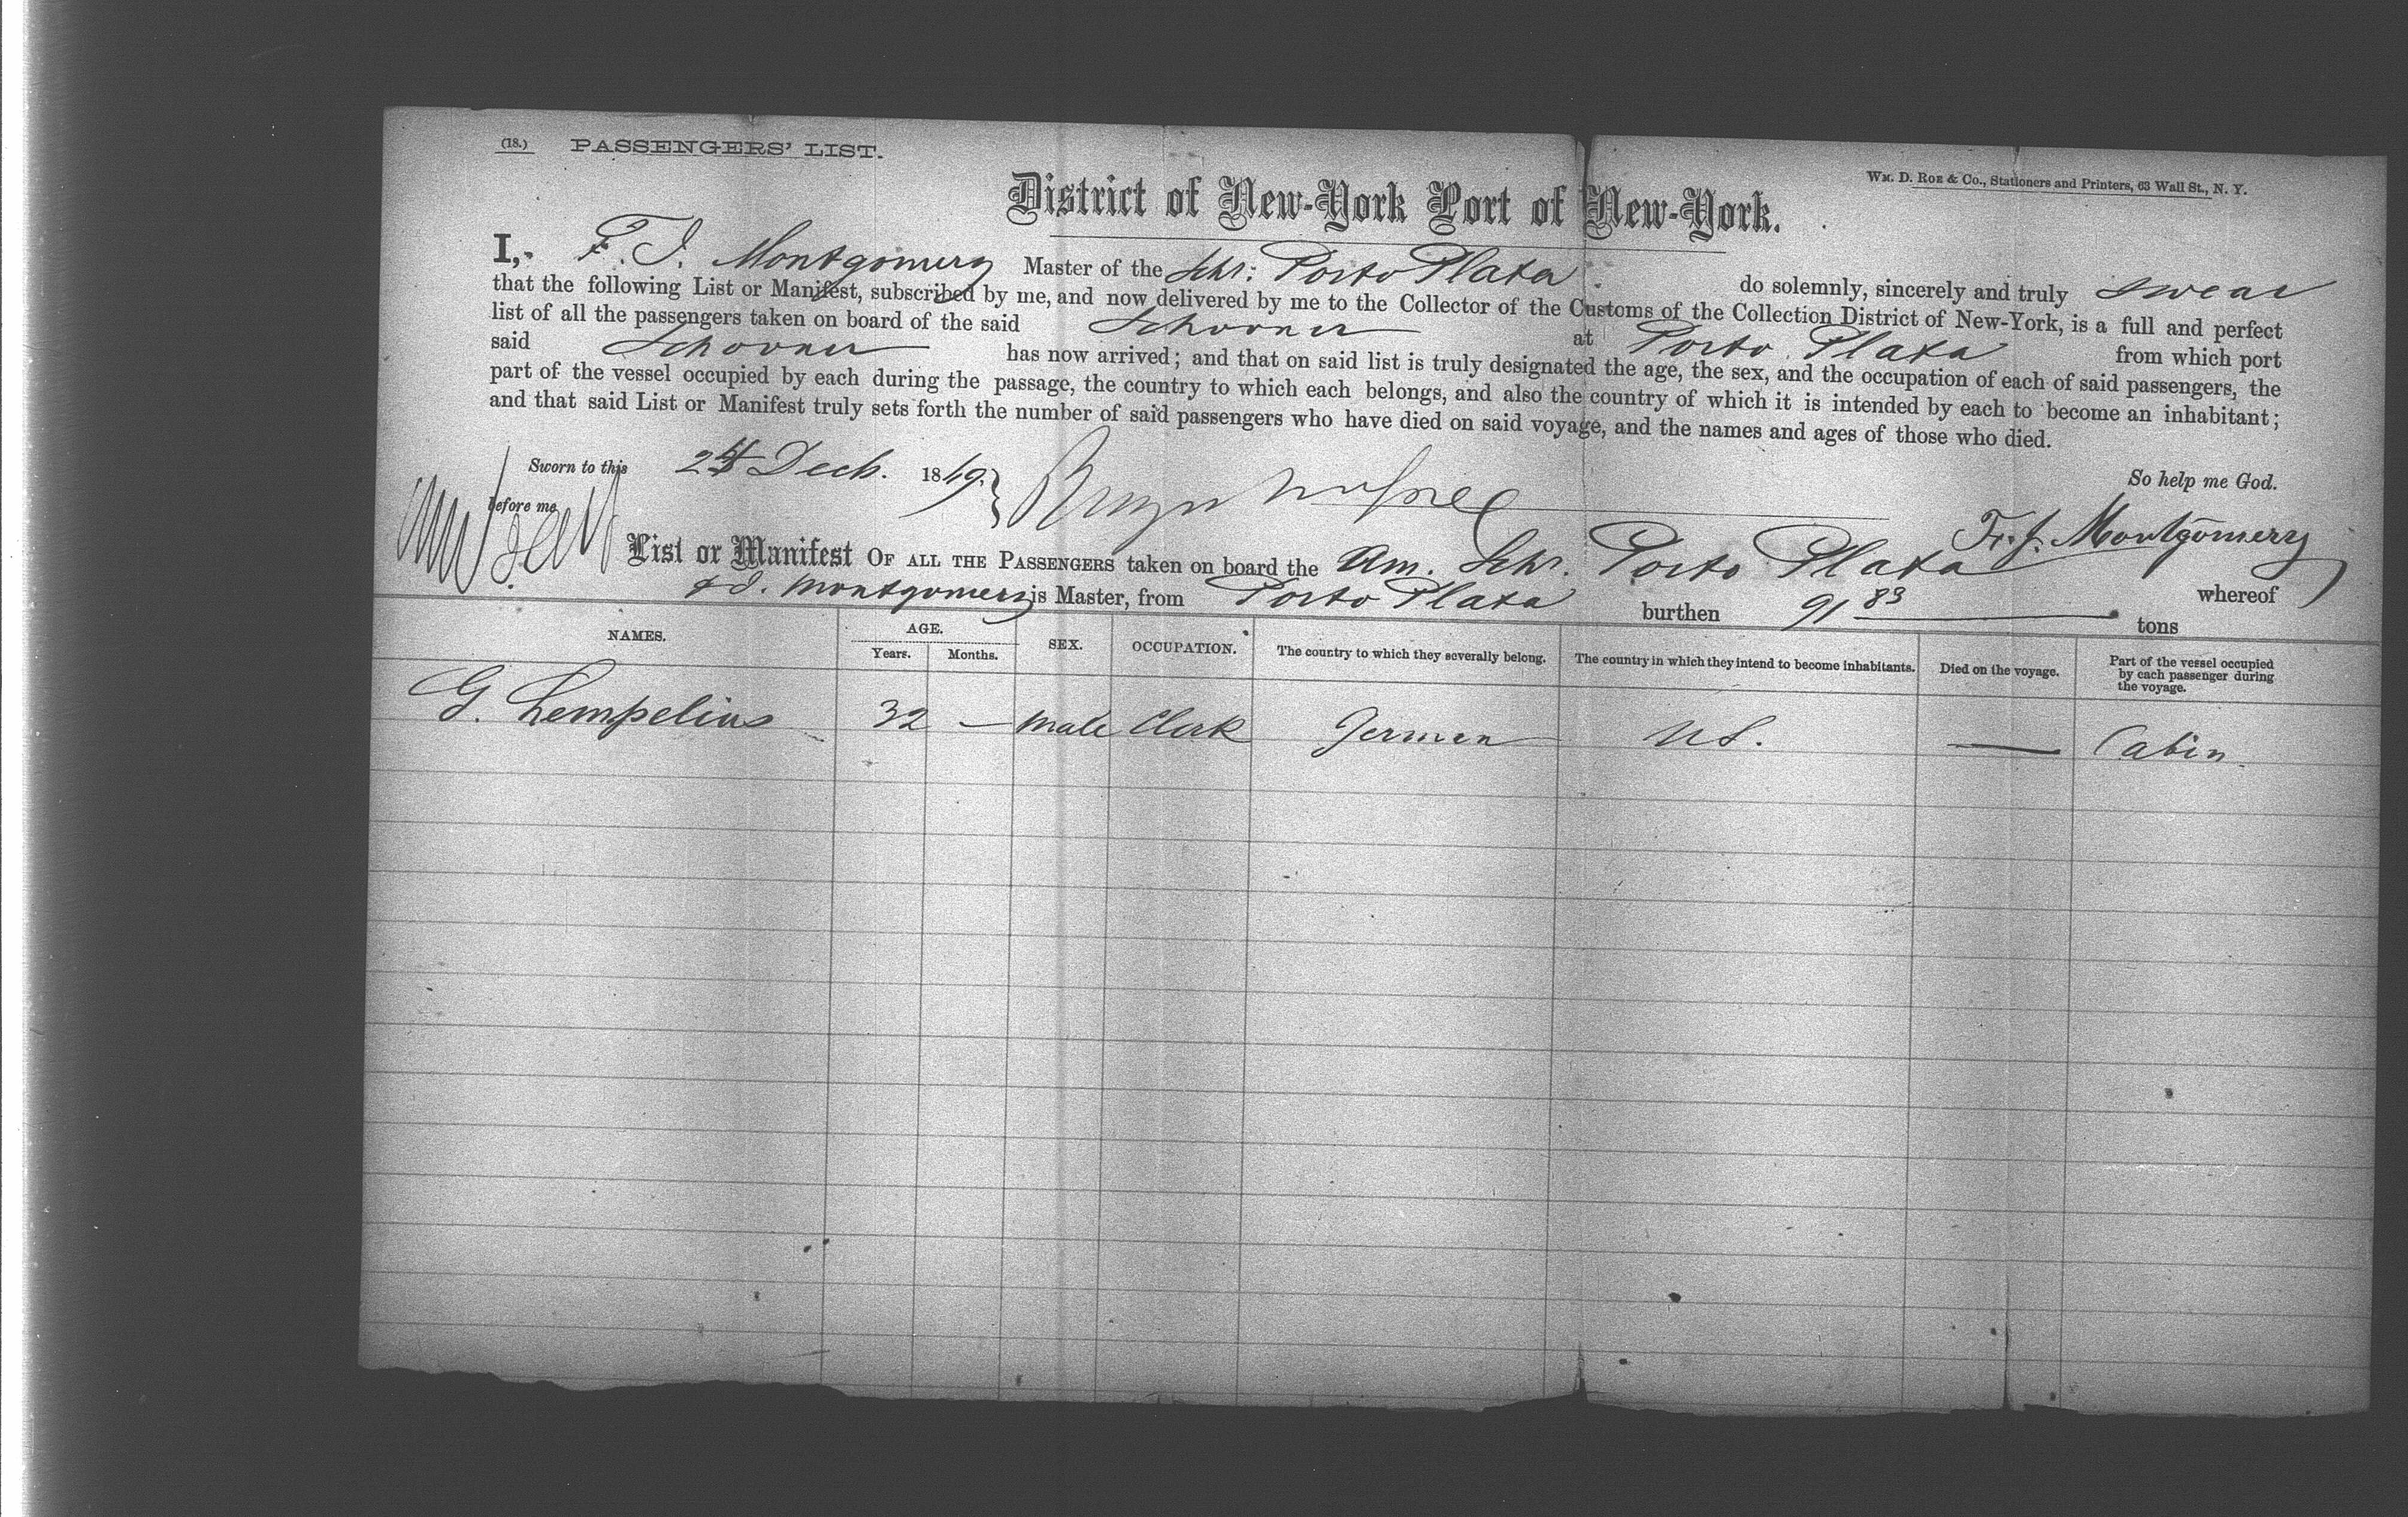 (18.) PASSENGERS' LIST.
WM. D. ROE & CO., Stationers and Printers, 63 Wall St., N. Y.
District of New-York Port of New-York.
I, F. J. Montgomery Master of the Schr: Porto Plata do solemnly, sincerely and truly swear
that the following List or Manifest, subscribed by me, and now delivered by me to the Collector of the Customs of the Collection District of New-York, is a full and perfect
list of all the passengers taken on board of the said Schooner at Porto Plata from which port
said Schooner has now arrived; and that on said list is truly designated the age, the sex, and the occupation of each of said passengers, the
part of the vessel occupied by each during the passage, the country to which each belongs, and also the country of which it is intended by each to become an inhabitant;
and that said List or Manifest truly sets forth the number of said passengers who have died on said voyage, and the names and ages of those who died.
So help me God.
Sworn to this Dech. 1869.
before me
Fr. J. Montgomery
List or Manifest OF ALL THE PASSENGERS taken on board the Am. Schr. Porto Plata whereof
F J. Montgomery is Master, from Porto Plata burthen 91 83 tons
NAMES. AGE. Years. Months. SEX. OCCUPATION. The country to which they severally belong. The country in which they intend to become inhabitants. Died on the voyage. Part of the vessel occupied by each passenger during the voyage.
G. Lempelius 32 — Male Clerk German U S. — Cabin